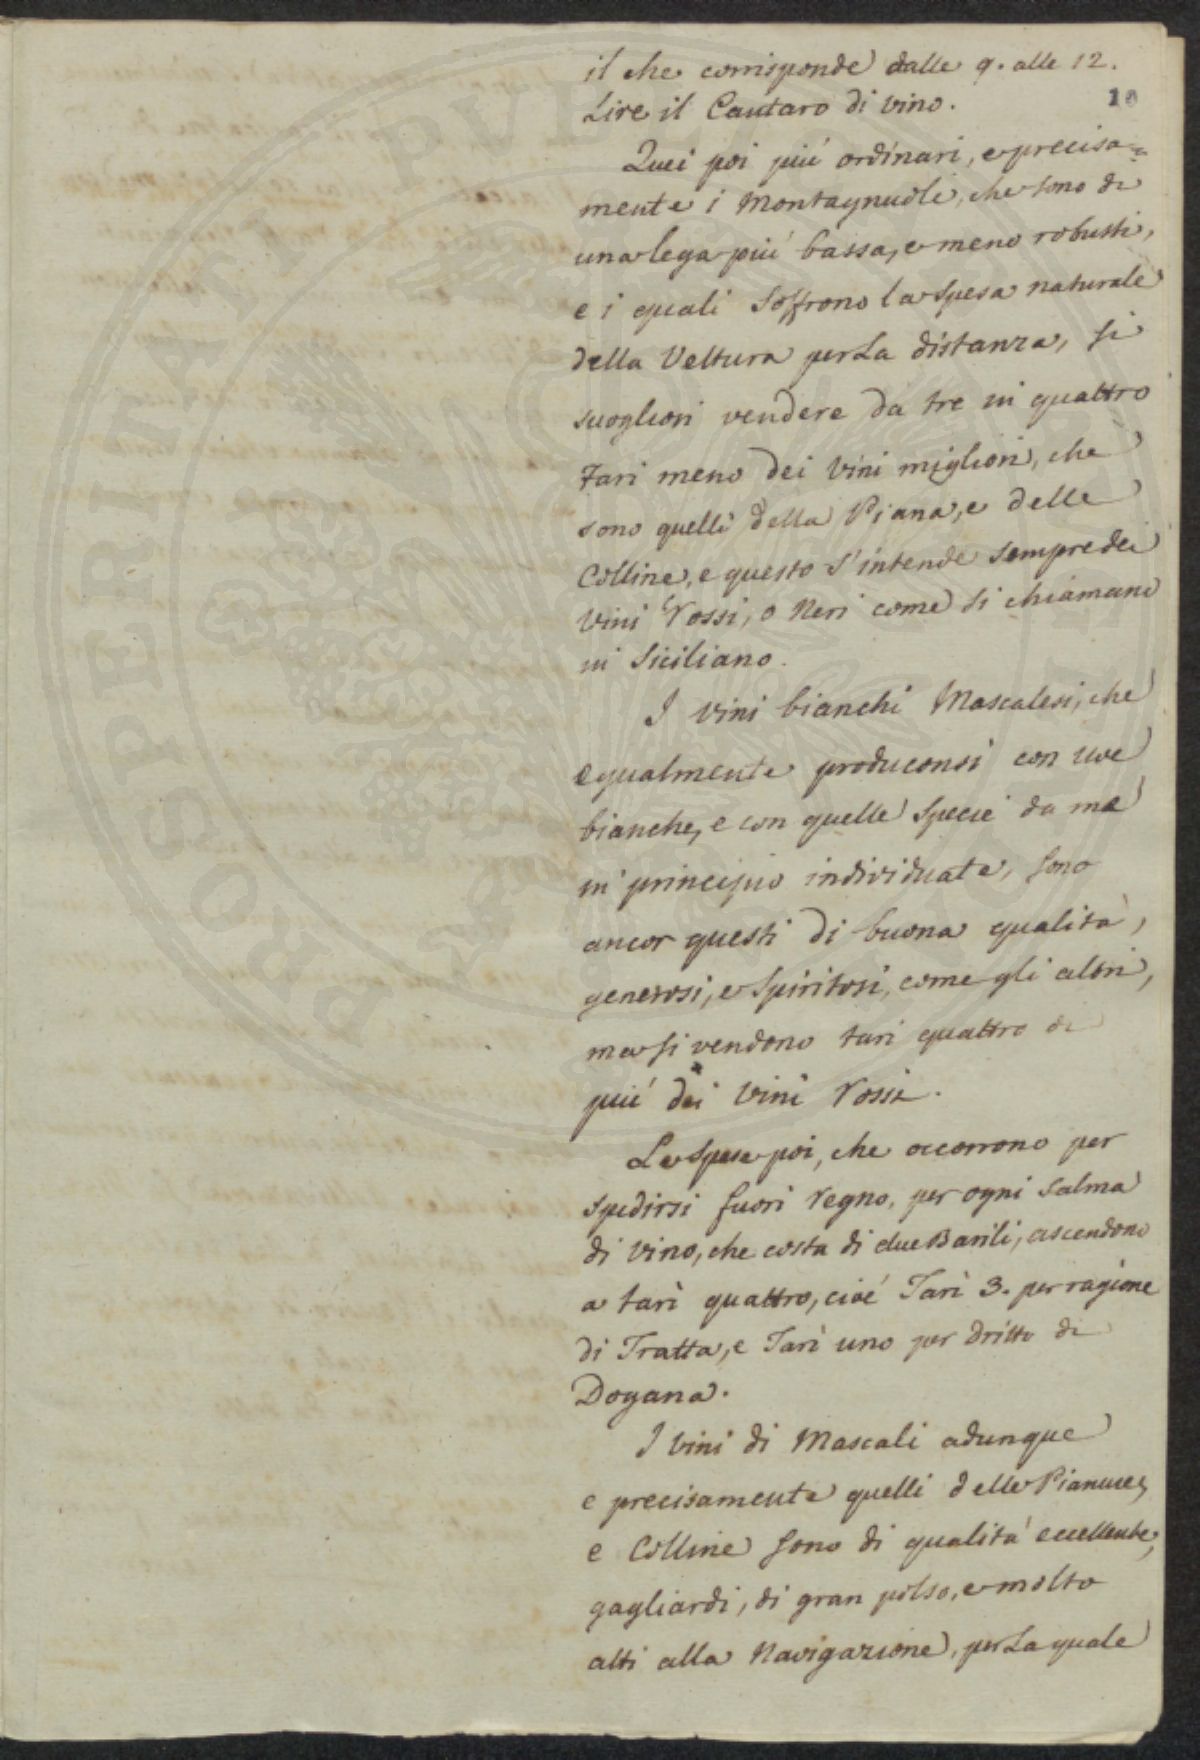 il che corrisponde dalle 9. alle 12.
Lire il Cantaro di vino.
10
Quei poi piú ordinari, e precisa=
mente i Montagnuoli, che sono di
una lega piú bassa, e meno robusti,
e i quali soffrono la spesa naturale
della Vettura per La distanza, si
soglion vendere da tre in quattro
Tarì meno dei Vini migliori, che
sono quelli della Piana, e delle
Colline, e questo s'intende sempre dei
Vini rossi, o Neri come si chiamano
in Siciliano.
I vini bianchi Mascalesi, che
egualmente produconsi con uve
bianche, e con quelle Specie da me
in principio individuate, sono
ancor questi di buona qualità,
generosi, e Spiritosi, come gli altri,
ma si vendono tari quattro di
piú dei Vini rossi.
Le Spese poi, che occorrono per
spedirsi fuori regno, per ogni Salma
di vino, che costa di due Barili, ascendono
a tarì quattro, cioé Tarì 3. per ragione
di Tratta, e Tarì uno per dritto di
Dogana.
I Vini di Mascali adunque
e precisamente quelli delle Pianure,
e Colline sono di qualità eccellente,
gagliardi, di gran polso, e molto
atti alla Navigazione, per La quale
PROSPERITATI PUBLICAE